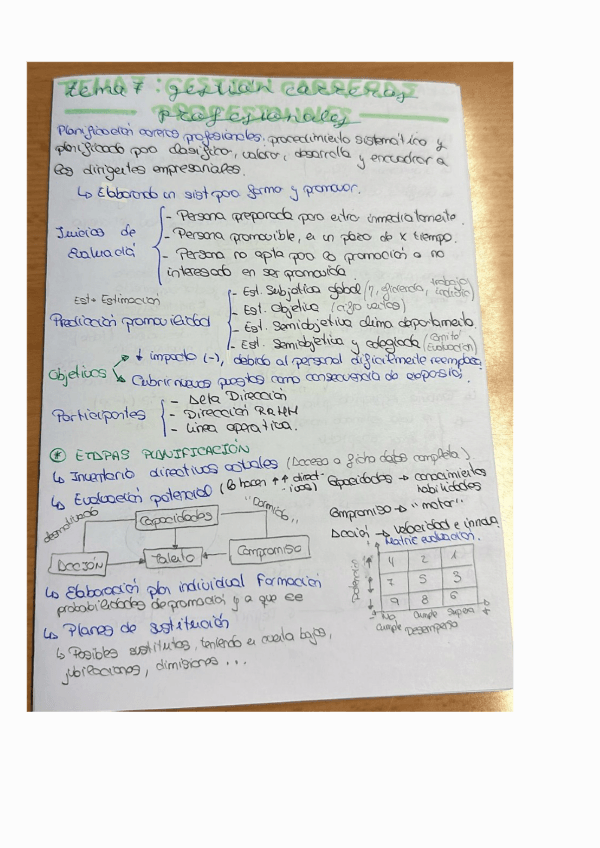 TEMA 7: GESTIÓN CARRERAS
PROFESIONALES
Planificación carreras profesionales: procedimiento sistemático y
planificado para clasificar, valorar, desarrolla y encuadrar a
los dirigentes empresariales.
↳ Elaborando un sist para formar y promover.
Juicios de Evaluación
- Persona preparada para extra inmediatamente.
- Persona promovible, en un plazo de X tiempo.
- Persona no apta para la promoción o no
interesado en ser promovida
Est = Estimación
Predicación promovilidad
- Est. Subjetiva global (?, gerencia, trabajo individ)
- Est. Objetiva (algo vacíos)
- Est. Semiobjetiva clima departamento.
- Est. Semiobjetiva y colegiada (Comité Evaluación)
Objetivos
↓ impacto (-), debido al personal dificilmente reemplaza.
Cubrir nuevos puestos como consecuencia de expansión
Participantes
- Alta Dirección
- Dirección RRHH
- Línea operativa.
* ETAPAS PLANIFICACIÓN
↳ Inventario directivos actuales (Acceso a ficha datos completa)
↳ Evaluación potencial (lo hacen ↑↑ direct-ivos)
Capacidades → conocimientos habilidades
Compromiso → "motor"
Acción → velocidad e innova.
desmotivado
"Dormido"
Capacidades
ACCIÓN
Talento
Compromiso
Matriz evaluación.
Potencial
4 2 1
7 5 3
9 8 6
- No cumple Cumple Supera +
Desempeño
↳ Elaboración plan individual Formación
probabilidades de promoción y a que se
↳ Planes de sustitución
↳ Posibles sustitutos, teniendo en cuenta bajas,
jubilaciones, dimisiones ...